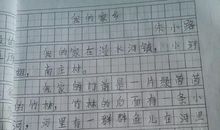 我的家乡
朱小路
我的家在涟水河镇,小河
细,南庄村。
我家的门前是一片绿茵茵
的竹林,竹林的向面有一条小
河,河里有一群群鱼儿在河